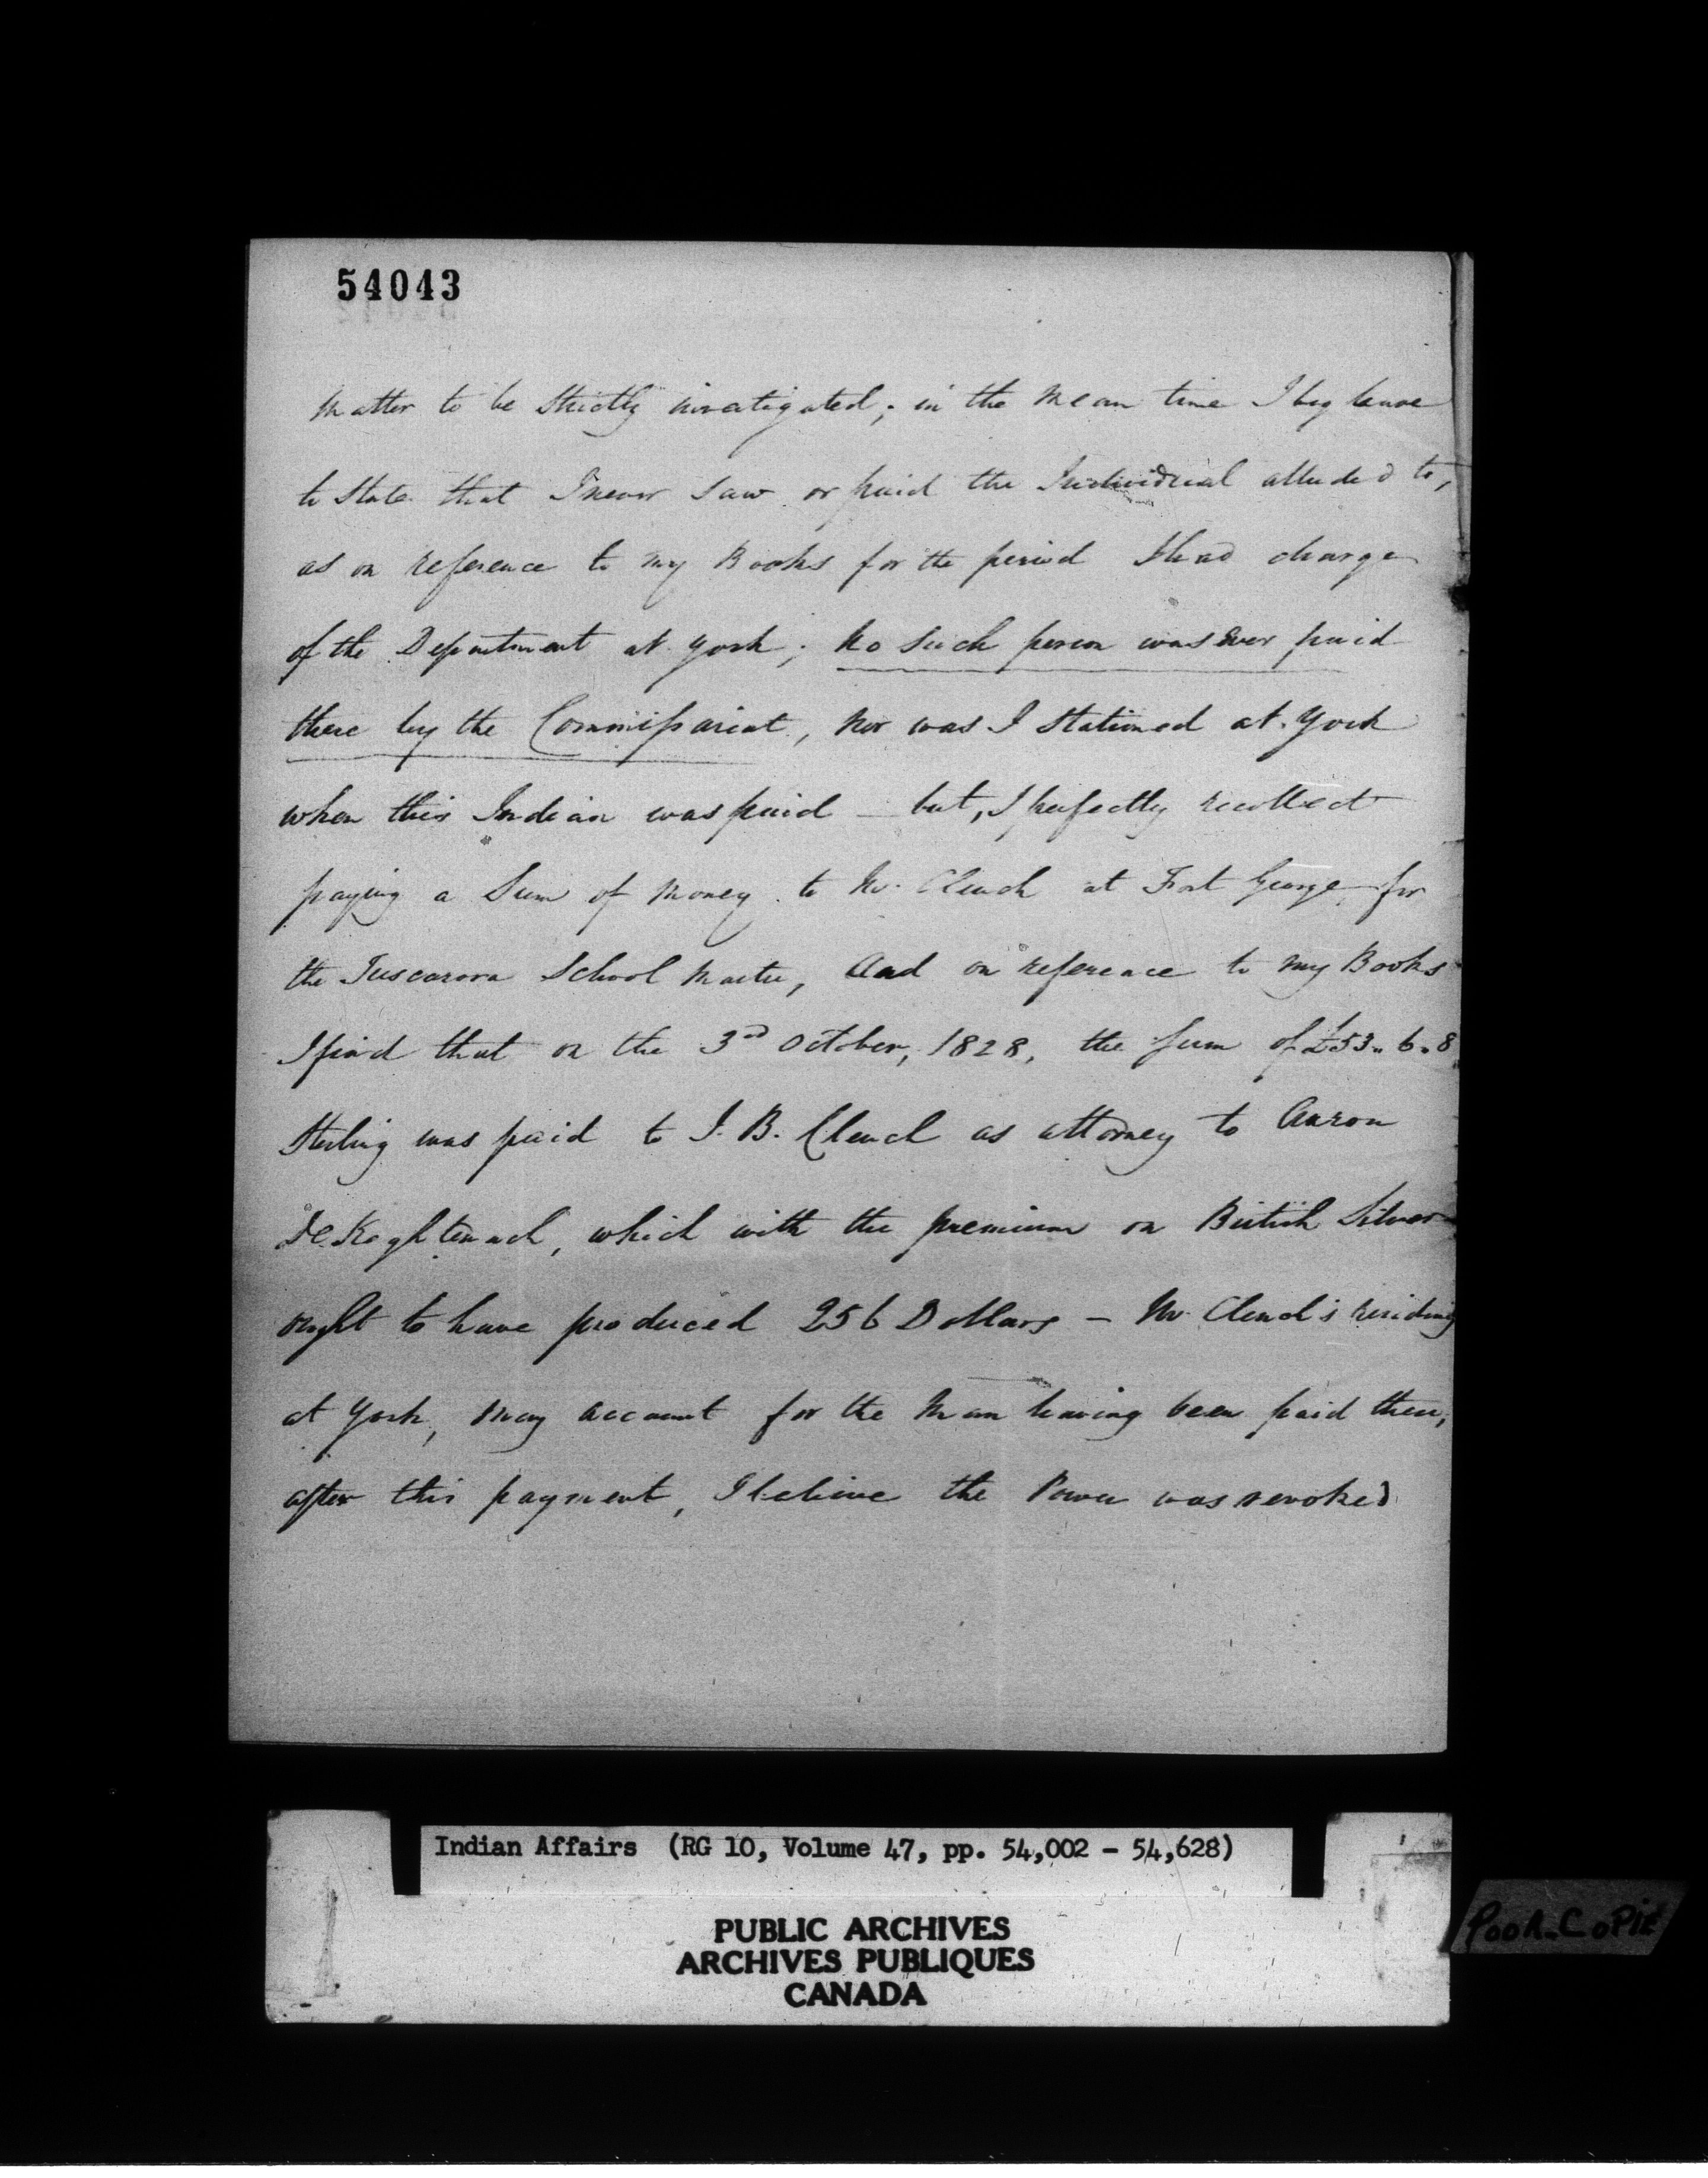 54043
matter to be Strictly investigated; in the mean time I beg leave
to State that I never saw or paid the Individual alluded to,
as on reference to my Books for the period I had charge
of the Department at York; No Such person was Ever paid
there by the Commissariat, nor was I Stationed at York
when this Indian was paid – but, I perfectly recollect
paying a Sum of money to Mr. Clench at Fort George for
the Tuscarora School Master, And on reference to my Books
I find that on the 3rd October, 1828, the Sum of £53.. 6.. 8
Sterling was paid to J. B. Clench as attorney to Aaron
which with the premium on British Silver
ought to have produced 256 Dollars – Mr Clench's residing
at York, may account for the Man having been paid there,
after this payment, I believe the Power was revoked
Indian Affairs (RG 10, Volume 47, pp. 54,002 - 54,628)
PUBLIC ARCHIVES
ARCHIVES PUBLIQUES
CANADA
POOR COPIE